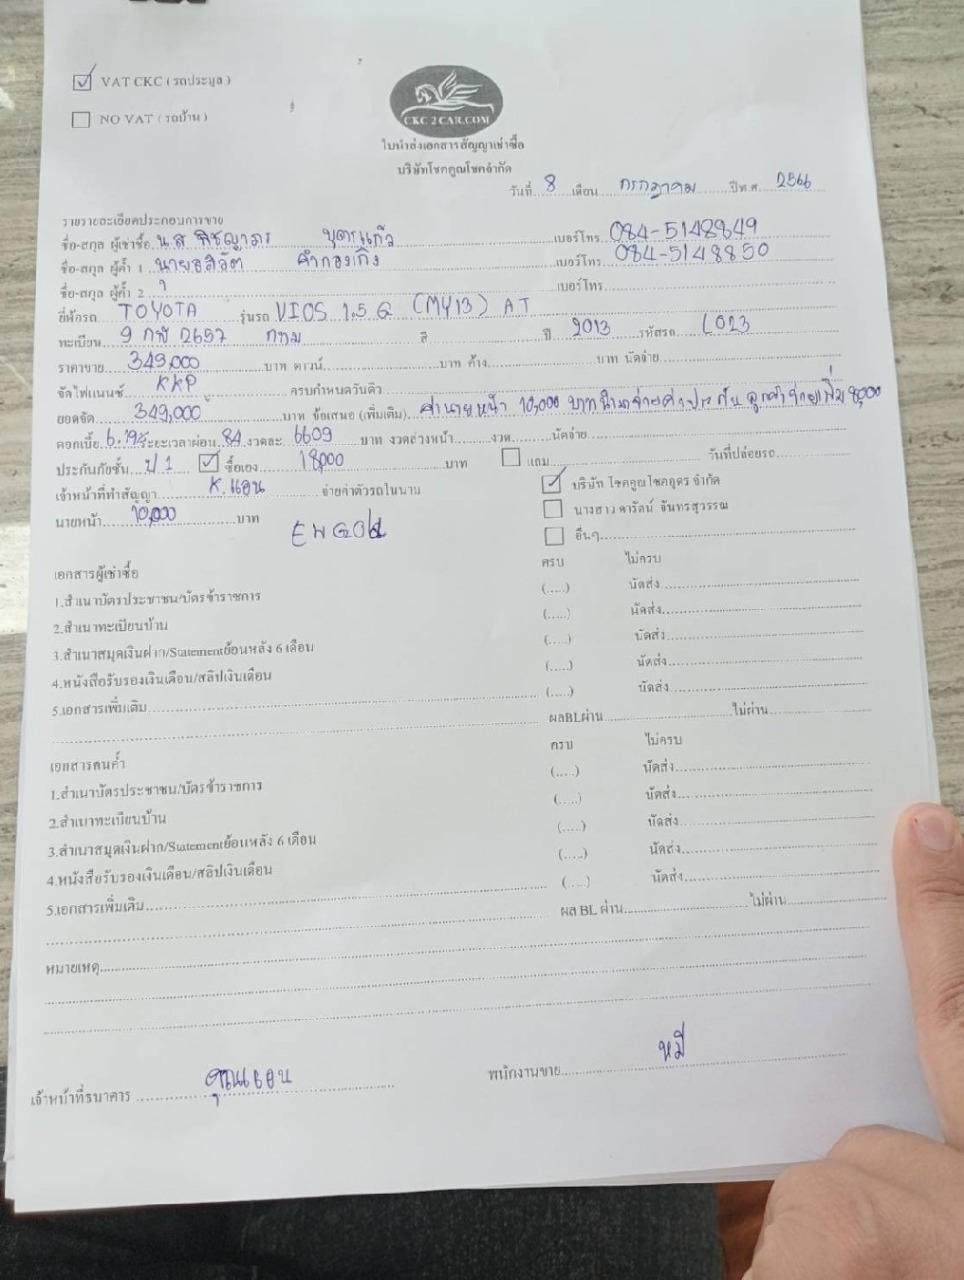 VAT CKC ( รถประมูล )
NO VAT ( รถบ้าน )
CKC 2 CAR.COM
ใบนำส่งเอกสารสัญญาเช่าซื้อ
บริษัทโชคคูณโชคจำกัด
วันที่ 8 เดือน กรกฎาคม ปีพ.ศ. 2566
รายรายละเอียดประกอบการขาย
ชื่อ-สกุล ผู้เช่าซื้อ น.ส พิชญาภร บุตรแก้ว เบอร์โทร 084-5148849
ชื่อ-สกุล ผู้ค้ำ 1 นาย คำกองเกิง เบอร์โทร 084-5148850
ชื่อ-สกุล ผู้ค้ำ 2 เบอร์โทร
ยี่ห้อรถ TOYOTA รุ่นรถ VIOS 1.5 G (MY13) AT
ทะเบียน 9 กฬ 2657 กทม สี ปี 2013 รหัสรถ L023
ราคาขาย 349,000 บาท ดาวน์ บาท ค้าง บาท นัดจ่าย
จัดไฟแนนซ์ KKP ครบกำหนดวันดิว
ยอดจัด 349,000 บาท ข้อเสนอ (เพิ่มเติม) ค่านายหน้า 10,000 บาทนำมาจ่ายค่าประกัน ลูกค้าจ่ายเพิ่ม 8,000
ดอกเบี้ย ระยะเวลาผ่อน 84 งวดละ 6609 บาท งวดล่วงหน้า งวด นัดจ่าย
ประกันภัยชั้น ป 1 ซื้อเอง 18,000 บาท แถม วันที่ปล่อยรถ
เจ้าหน้าที่ทำสัญญา K. แอน จ่ายค่าตัวรถในนาม บริษัท โชคคูณโชคอุดร จำกัด
นางสาว ดารัตน์ จันทรสุวรรณ
นายหน้า 10,000 บาท
อื่นๆ
เอกสารผู้เช่าซื้อ ครบ ไม่ครบ
1.สำเนาบัตรประชาชน/บัตรข้าราชการ (.....) นัดส่ง
2.สำเนาทะเบียนบ้าน (.....) นัดส่ง
3.สำเนาสมุดเงินฝาก/Statementย้อนหลัง 6 เดือน (.....) นัดส่ง
4.หนังสือรับรองเงินเดือน/สลิปเงินเดือน (.....) นัดส่ง
5.เอกสารเพิ่มเติม (.....) นัดส่ง
ผลBLผ่าน ไม่ผ่าน
เอกสารคนค้ำ ครบ ไม่ครบ
1.สำเนาบัตรประชาชน/บัตรข้าราชการ (.....) นัดส่ง
2.สำเนาทะเบียนบ้าน (.....) นัดส่ง
3.สำเนาสมุดเงินฝาก/Statementย้อนหลัง 6 เดือน (.....) นัดส่ง
4.หนังสือรับรองเงินเดือน/สลิปเงินเดือน (.....) นัดส่ง
5.เอกสารเพิ่มเติม (.....) นัดส่ง
ผล BL ผ่าน ไม่ผ่าน
หมายเหตุ
เจ้าหน้าที่ธนาคาร คุณแอน พนักงานขาย หมี